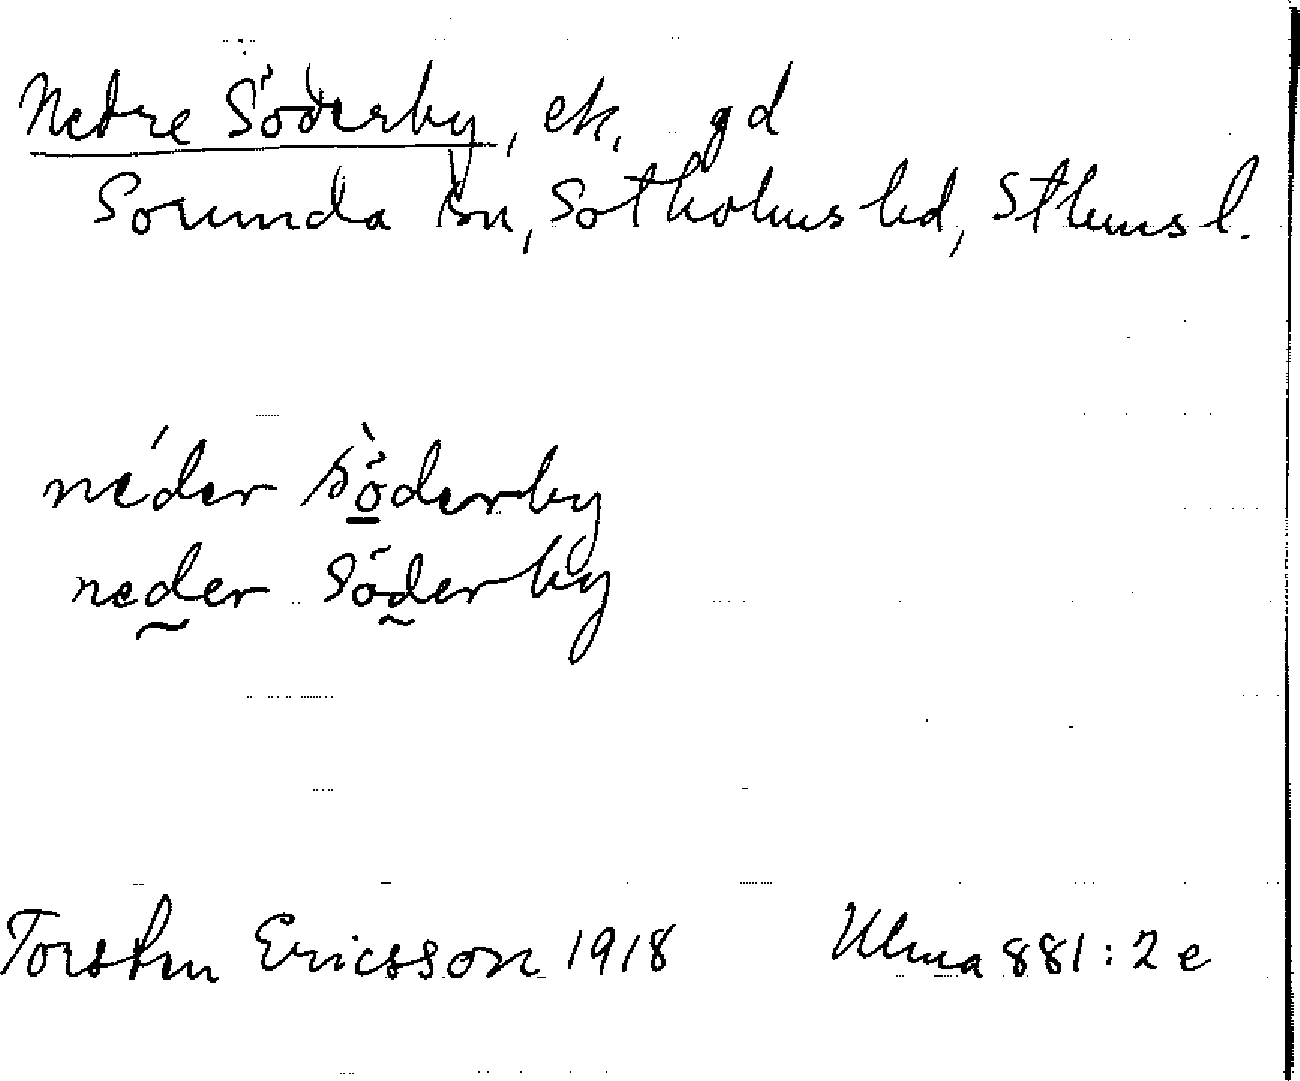 Nedre Söderby, ek, gd
Sorunda sn, Sotholms hd, Sthms l.
néder sö̀derby
neder söderby
Torsten Ericsson 1918 Ulma 881:2 e